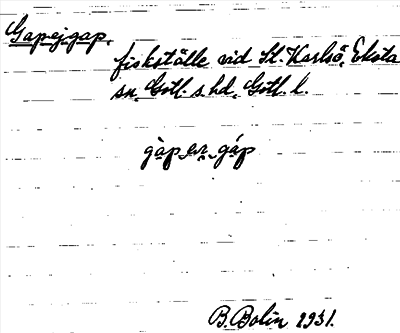 Gapejgap,
fiskställe vid St. Karlsö, Eksta
sn, Gotl. s. hd, Gotl. l.
gàp ... gáp
B. Bolin 1931.